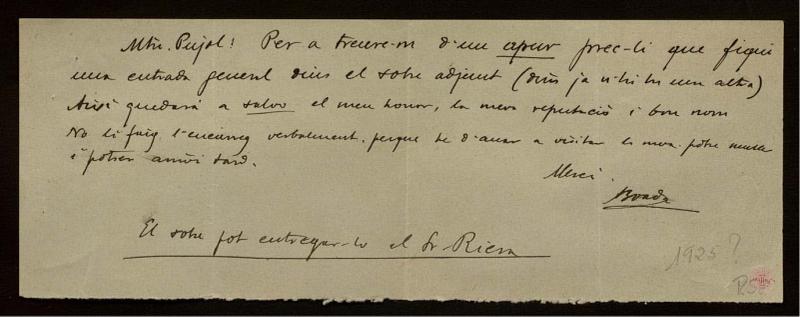 Mtre. Pujol: Per a treure-m d'un apur prec-li que fiqui
una entrada general dins el sobre adjunt (dins ja n'hi ha una altra)
Així quedará a salvo el meu honor, la meva reputació i bon nom
No li faig l'encárreg verbalment, perque he d'anar a visitar la meva pobre
i potser arrivi tard.
Merci.
Boada
El sobre pot entregar-lo el Sr Riera
1925?